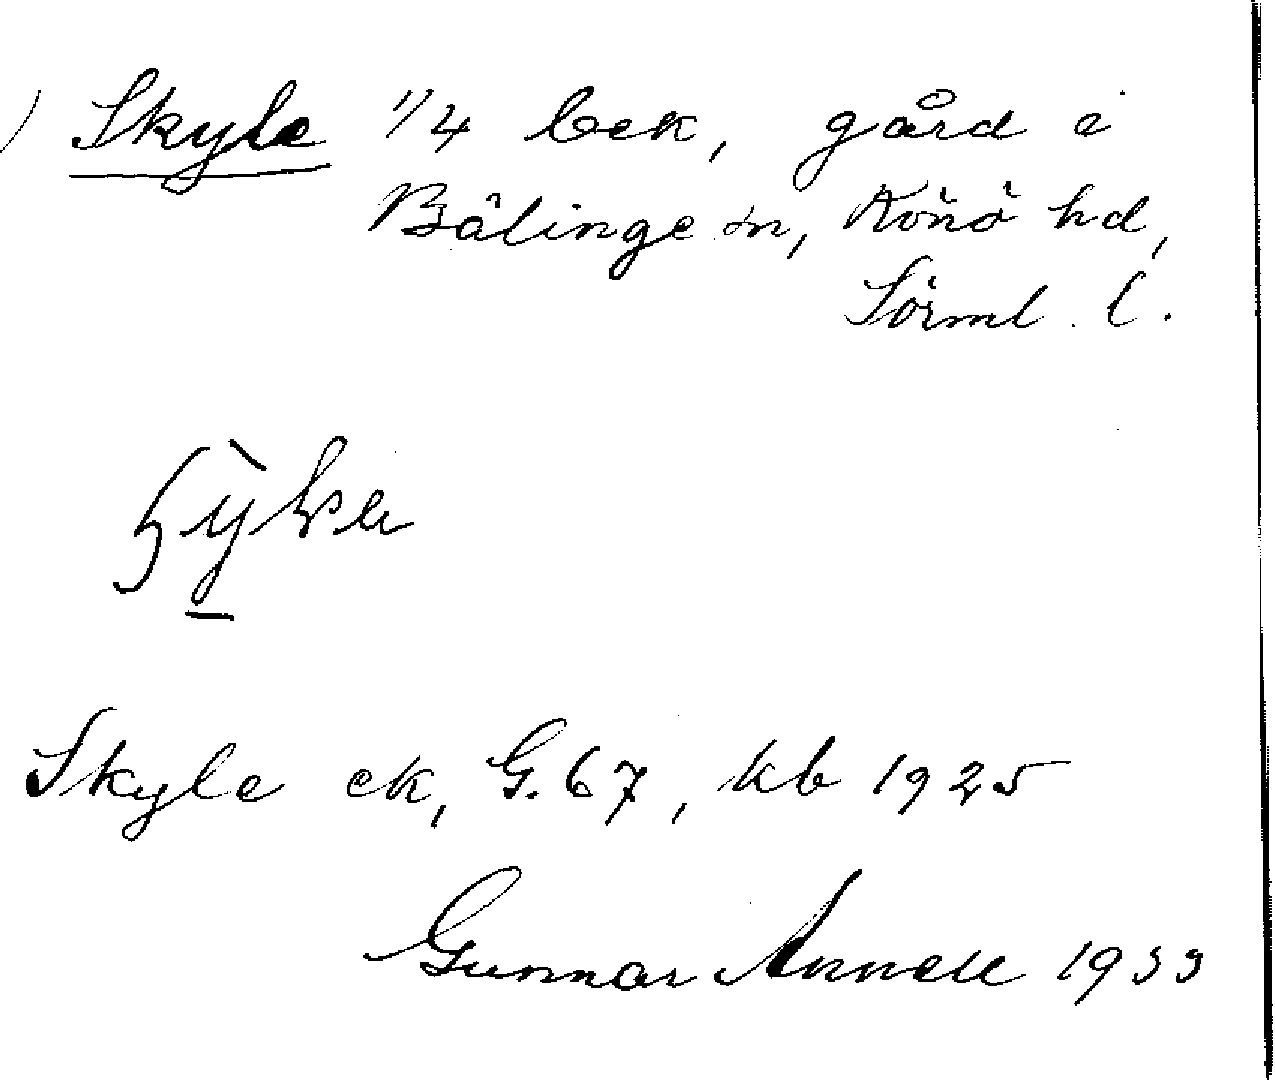 ) Skyle 1/4 bek, gård i
Bälinge sn, Rönö hd,
Sörml. l.
Skyle ek, G. 67, kb 1925
Gunnar Annell 1933